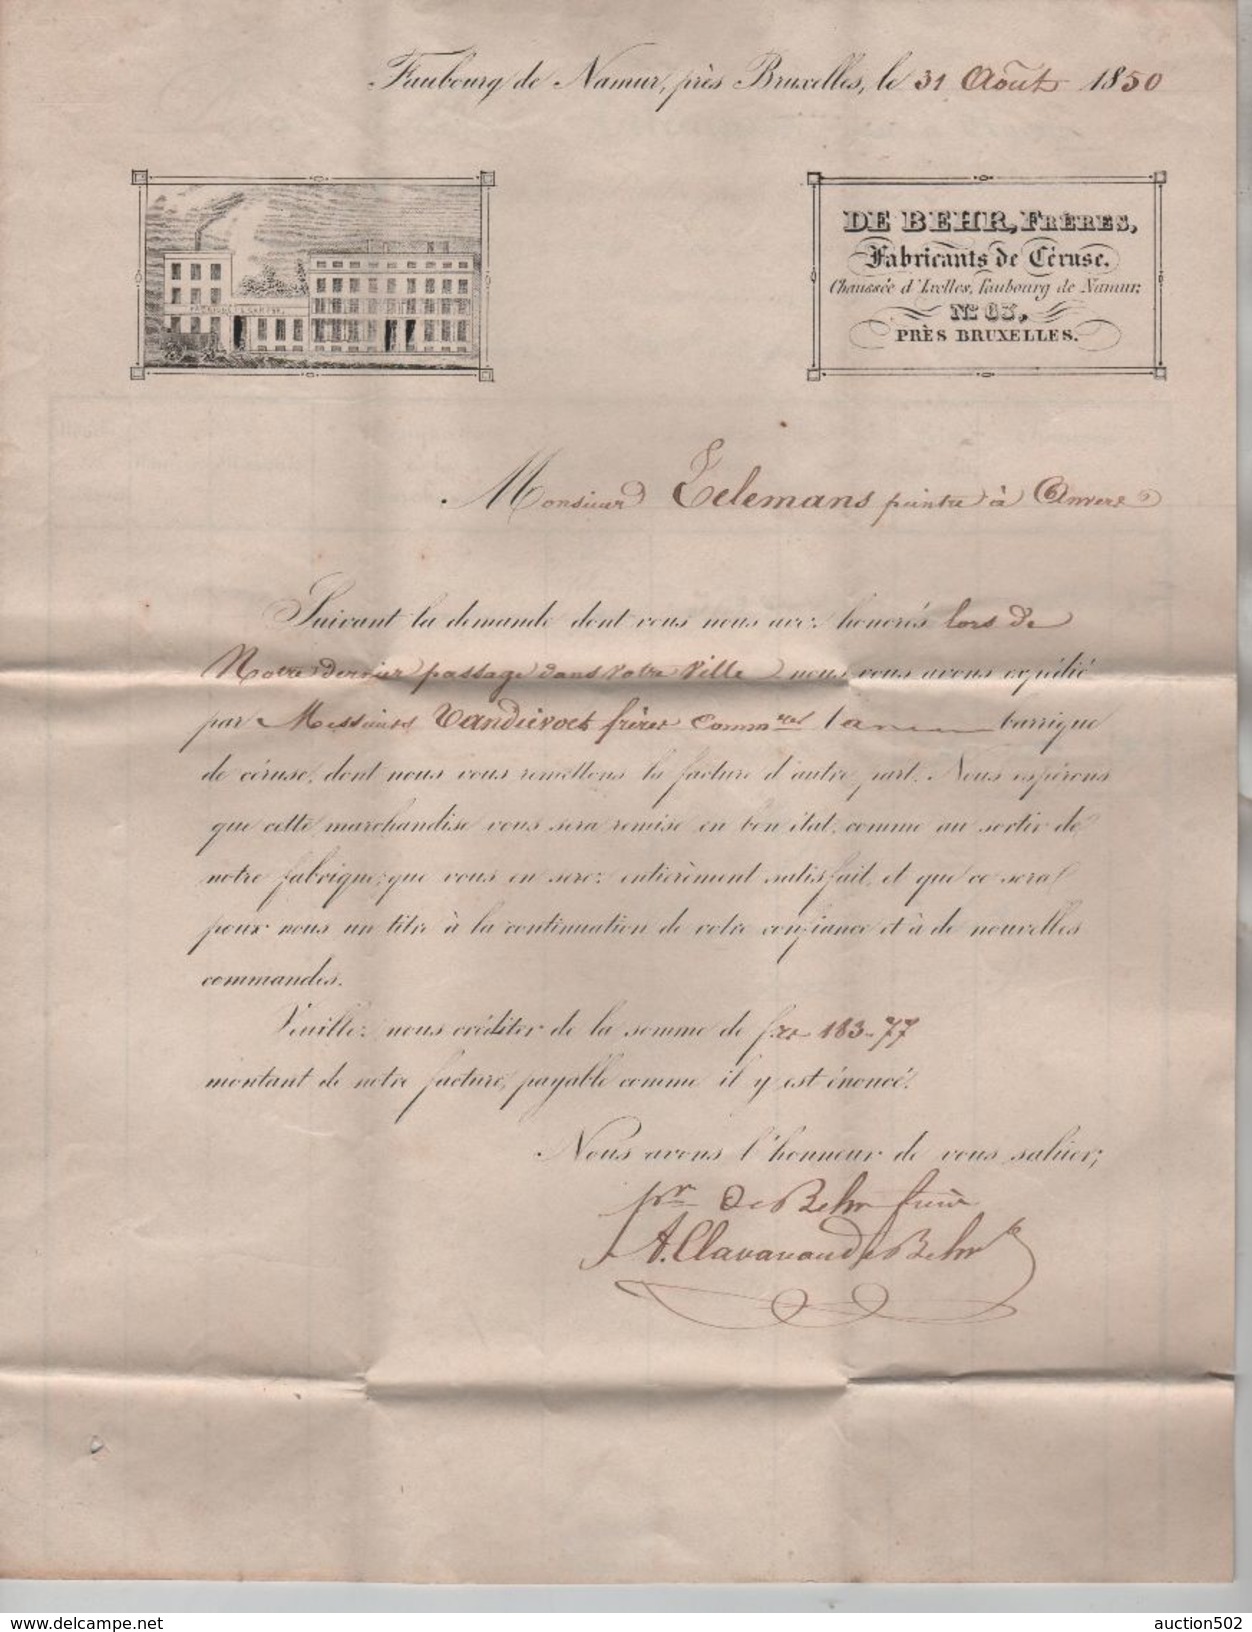 Faubourg de Namur, près Bruxelles, le 31 Août 1850
DE BEHR, FRÈRES,
Fabricants de Céruse,
Chaussée d'Ixelles, Faubourg de Namur,
No. 63,
PRÈS BRUXELLES.
Monsieur Telemans peintre à Anvers
Suivant la demande dont vous nous avez honorés lors de
Notre dernier passage dans votre Ville nous vous avons expédié
par Messieurs frères 1 a barrique
de céruse, dont nous vous remettons la facture d'autre part. Nous espérons
que cette marchandise vous sera remise en bon état, comme au sortir de
notre fabrique; que vous en serez entièrement satisfait, et que ce sera
pour nous un titre à la continuation de votre confiance et à de nouvelles
commandes.
Veuillez nous créditer de la somme de frs 183-77
montant de notre facture, payable comme il y est énoncé.
Nous avons l'honneur de vous saluer;
pr De Behr frères
A. de Behr
auction502